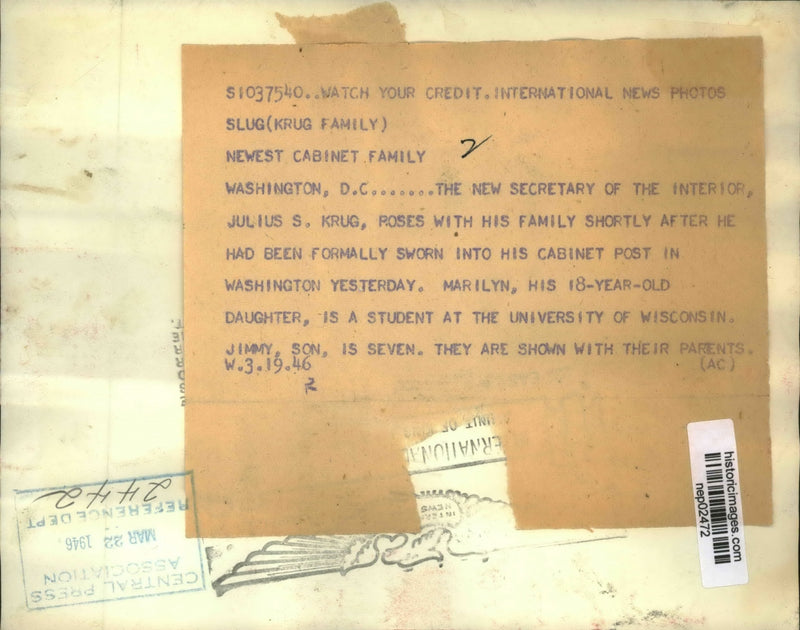 S1037540..WATCH YOUR CREDIT.INTERNATIONAL NEWS PHOTOS
SLUG(KRUG FAMILY)
NEWEST CABINET FAMILY
2
WASHINGTON, D.C.......THE NEW SECRETARY OF THE INTERIOR,
JULIUS S. KRUG, ROSES WITH HIS FAMILY SHORTLY AFTER HE
HAD BEEN FORMALLY SWORN INTO HIS CABINET POST IN
WASHINGTON YESTERDAY. MARILYN, HIS 18-YEAR-OLD
DAUGHTER, IS A STUDENT AT THE UNIVERSITY OF WISCONSIN.
JIMMY, SON, IS SEVEN. THEY ARE SHOWN WITH THEIR PARENTS.
W.3.19.46 (AC)
UNIT OF
ERNATIONAL
INTER
NEWS
CENTRAL PRESS
ASSOCIATION
MAR 22 1946
REFERENCE DEPT
2442
historicimages.com
nep02472